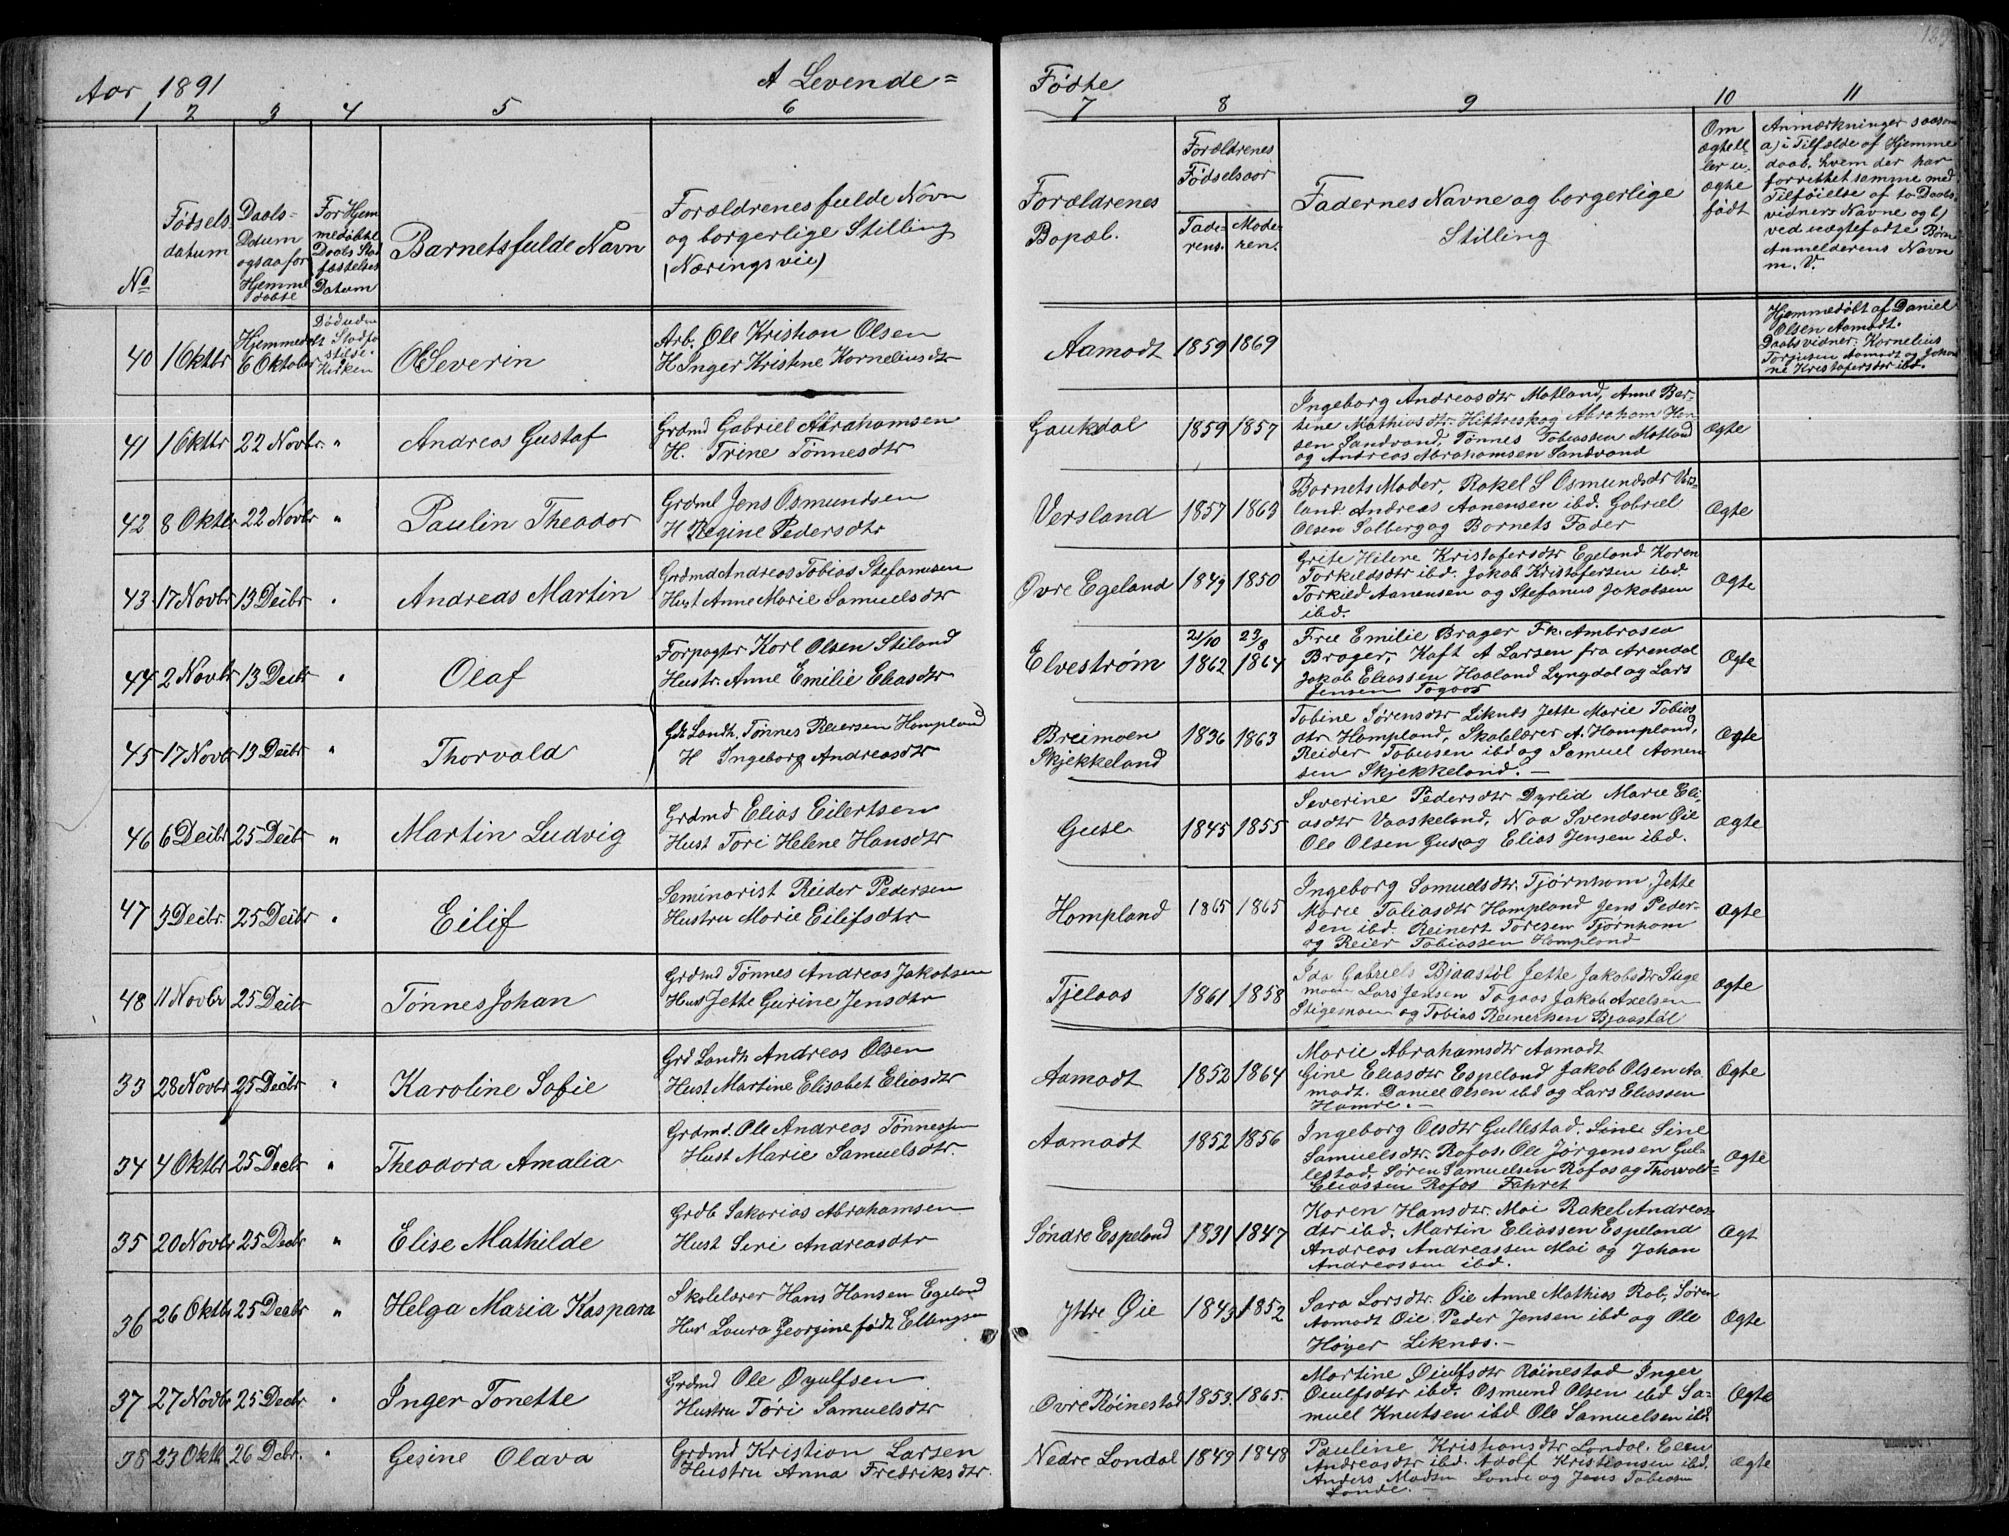 Aar 1891 A Levende= Fødte
1 2 3 4 5 6 7 8 9 10 11
No
Fødsels
datum
Daabs=
Datum
ogsaa for
Hjemme
døbte
For Hjem
medøbte
Daabs Stad
fæstelses
Datum
Barnets fulde Navn
Forældrenes fulde Navn
og borgerlige Stilling
(Næringsvei)
Forældrenes
Bopæl.
Forældrenes
Fødselsaar
Fade-
rens.
Mode-
ren.
Fadernes Navne og borgerlige
Stilling
Om
ægte el-
ler u-
ægte
født
Anmærkninger saasom
a) i Tilfælde af Hjemme
daab, hvem der har
forrettet samme med
Tilføielse af to Daabs
vidners Navne og b)
ved uægtefødte Børn
Anmelderens Navn
m. V.
40 1 Oktbr
Hjemmedøbt
6 Oktober
Kirken
Severin
Arb. Ole Kristian Olsen
H Inger Kristine Korneliusdtr
Aamodt 1859 1869
Hjemmedøbt af Daniel
Olsen Aamodt.
Daabsvidner. Kornelius
Torjusen Aamodt og
ne Kristofersdtr ibd.
41 1 Oktbr 22 Novbr. "
Andreas Gustaf
Grdmd Gabriel Abrahamsen
H. Trine Tønnesdtr
Gaukdal 1859 1857
Ingeborg Andreasdtr Motland, Anne Ber-
tine Mathiasdtr. Hittreskog Abraham Han-
sen Sandvand, Tønnes Tobiassen Motland
og Andreas Abrahamsen Sandvand
Ægte
42 8 Oktbr 22 Novbr "
Paulin Theodor
Grdmd Jens Osmundsen
H Regine Pedersdtr
Versland 1857 1863
Barnets Moder, Rakel S Osmundsdr Vers-
land. Andreas Aanensen ibd. Gabriel
Olsen Solberg og Barnets Fader
Ægte
43 17 Novbr 13 Decbr "
Andreas Martin
Grdmd Andreas Tobias Stefanusen
Hust Anne Marie Samuelsdtr
Øvre Egeland 1849 1850
Grite Helene Kristofersdtr Egeland Karen
Torkildsdtr ibd. Jakob Kristofersen ibd.
Torkild Aanensen og Stefanus Jakobsen
ibd.
Ægte
44 2 Novbr 13 Decbr "
Olaf
Forpagtr Karl Olsen Stiland
Hustr. Anne Emilie Eliasdtr
Elvestrøm 21/10 1862 23/8 1864
Frue Emilie Brager Fk. Ambrosea
Brager, Kaft A Larsen fra Arendal
Jakob Eliassen Haaland Lyngdal og Lars
Jensen Togaas
Ægte
45 17 Novbr 13 Decbr "
Thorvald
Gdr Landh. Tønnes Reiersen Hompland
H Ingeborg Andreasdtr
Breimoen
Skjekkeland
1836 1863
Tobine Sørensdtr Liknæs Jette Marie Tobias
dtr Hompland, Skolelærer A. Hompland,
Reider Tobiasen ibd og Samuel Aanen
sen Skjekkeland. -
Ægte
46 6 Decbr 25 Decbr "
Martin Ludvig
Grdmd Elias Eilertsen
Hust Tori Helene Hansdtr
Guse 1845 1855
Severine Pedersdtr Dyrlid Marie Eli-
asdtr Vaaskeland, Noa Svendsen Øie
Ole Olsen Guse og Elias Jensen ibd.
Ægte
47 5 Decbr. 25 Decbr "
Eilif
Seminarist Reider Pedersen
Hustru Marie Eilifsdtr
Hompland 1865 1865
Ingeborg Samuelsdtr. Tjørnhom, Jette
Marie Tobiasdtr Hompland Jens Peder-
sen ibd. Reinert Toresen Tjørnhom
og Reier Tobiassen Hompland
Ægte
48 11 Novbr 25 Decbr
Tønnes Johan
Grdmd Tønnes Andreas Jakobsen
Hust Jette Gurine Jensdtr
Tjelaas 1861 1858
Ida Gabriels Bjaastøl Jette Jakobsdtr Stige
moen Lars Jensen Togaas Jakob Axelsen
Stigemoen og Tobias Reinertsen Bjaastøl
Ægte
33 28 Novbr 25 Decbr "
Karoline Sofie
Grd Landh Andreas Olsen
Hust. Martine Elisabet Eliasdtr
Aamodt 1852 1864
Marie Abrahamsdtr Aamodt
Gine Eliasdtr Espeland Jakob Olsen Aa
modt. Daniel Olsen ibd og Lars Eliassen
Hamre. -
Ægte
34 4 Oktbr 25 Decbr "
Theodora Amalia
Grdmd. Ole Andreas Tønnessen
Hust Marie Samuelsdtr.
Aamodt 1852 1856
Ingeborg Olsdtr Gullestad. Sine Sine
Samuelsdtr. Rafos, Ole Jørgensen Gul-
lestad, Søren Samuelsen Rafos og Thorvald=
Eliassen Rafos
Ægte
35 20 Novbr 25 Decbr "
Elise Mathilde
Grdb Sakarias Abrahamsen
Hust Seri Andreasdtr
Søndre Espeland 1831 1847
Karen Hansdtr. Moi Rakel Andreas
dtr ibd. Martin Eliassen Espeland
Andreas Andreassen Moi og Johan
Andreassen ibd.
Ægt
36 26 Oktbr 25 Decbr "
Helga Maria Kaspara
Skolelærer Hans Hansen Egeland
Hus Laura Georgine født Ellingsen
Ytre Øie 1843 1852
Sara Larsdtr. Øie Anne Mathias Rob, Søren
Aamodt Øie Peder Jensen ibd og Ole
Høyer Liknæs. -
Ægte
37 27 Novbr 25 Decbr "
Inger Tonette
Grdmd Ole Øyulfsen
Hustru Tori Samuelsdtr
Øvre Røinestad 1853. 1865.
Martine Øiulfsdtr Røinestad Inger
Øiulfsdtr ibd. Osmund Olsen ibd Sa-
muel Knutsen ibd Ole Samuelsen ibd.
Ægte
38 23 Oktb. 26 Debr. "
Gesine Olava
Grdmd Kristian Larsen
Hustru Anna Fredriksdtr.
Nedre Londal 1849 1848
Pauline Kristiansdtr Londal. Elen
Andreasdtr ibd. Adolf Kristiansen ibd.
Anders Madsen Londe og Jens Tobiasen
Londe. -
Ægte